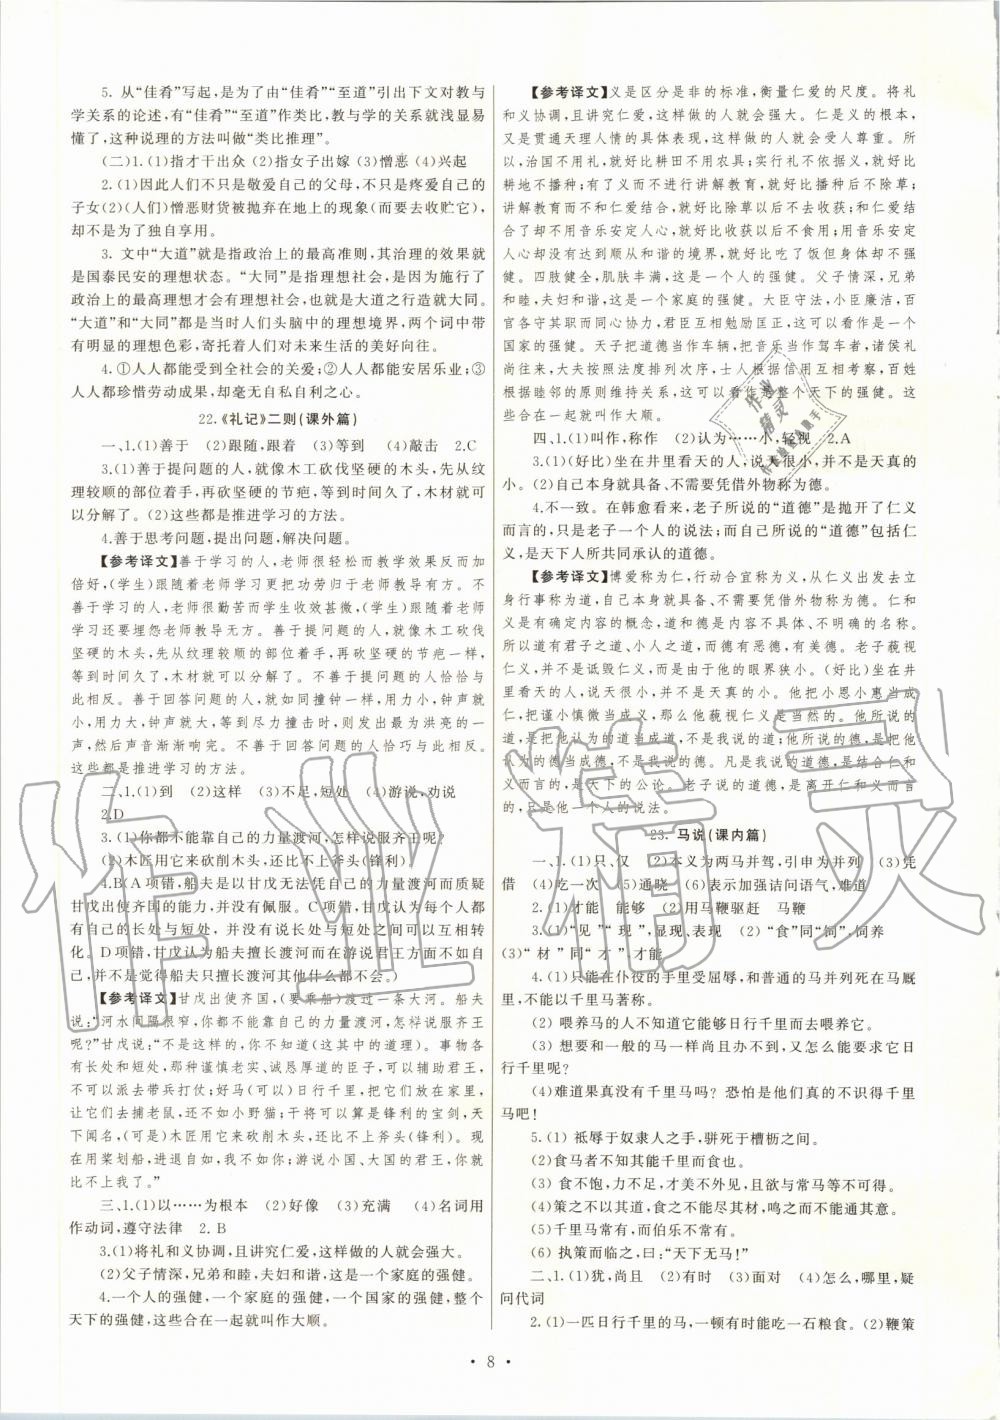 5. 从“佳肴”写起，是为了由“佳肴”“至道”引出下文对教与
学关系的论述，有“佳肴”“至道”作类比，教与学的关系就浅显易
懂了，这种说理的方法叫做“类比推理”。
(二)1.(1)指才干出众 (2)指女子出嫁 (3)憎恶 (4)兴起
2.(1)因此人们不只是敬爱自己的父母，不只是疼爱自己的
子女(2)(人们)憎恶财货被抛弃在地上的现象(而要去收贮它)，
却不是为了独自享用。
3. 文中“大道”就是指政治上的最高准则，其治理的效果就
是国泰民安的理想状态。“大同”是指理想社会，是因为施行了
政治上的最高理想才会有理想社会，也就是大道之行造就大同。
“大道”和“大同”都是当时人们头脑中的理想境界，两个词中带
有明显的理想色彩，寄托着人们对未来生活的美好向往。
4.①人人都能受到全社会的关爱；②人人都能安居乐业；③
人人都珍惜劳动成果，却毫无自私自利之心。
22.《礼记》二则(课外篇)
一、1.(1)善于 (2)跟随，跟着 (3)等到 (4)敲击 2.C
3.(1)善于提问题的人，就像木工砍伐坚硬的木头，先从纹
理较顺的部位着手，再砍坚硬的节疤，等到时间长了，木材就可
以分解了。(2)这些都是推进学习的方法。
4.善于思考问题，提出问题，解决问题。
【参考译文】善于学习的人，老师很轻松而教学效果反而加
倍好，(学生)跟随着老师学习更把功劳归于老师教导有方。不
善于学习的人，老师很勤苦而学生收效甚微，(学生)跟随着老师
学习还要埋怨老师教导无方。善于提问题的人，就像木工砍伐
坚硬的木头，先从纹理较顺的部位着手，再砍坚硬的节疤，
等到时间久了，木材就可以分解了。不善于提问题的人恰恰与
此相反。善于回答问题的人，就如同撞钟一样，用力小，钟声就
小，用力大，钟声就大，等到尽力撞击时，就会发出最为洪亮的一
声，然后声音渐渐响完。不善于回答问题的人恰巧与此相反。
这些都是推进学习的方法。
二、1.(1)到 (2)这样 (3)不足，短处 (4)游说，劝说
2.D
3.(1)你都不能靠自己的力量渡河，怎样说服齐王呢？
(2)木匠用它来砍削木头，还比不上斧头(锋利)。
4.B(A项错，船夫是以甘戊不能靠自己的力量渡河而怀疑
甘戊出使齐国的能力，并没有佩服。C项错，甘戊认为每个人都
有自己的长处与短处，但没有说长处与短处之间可以互相转
化。D项错，甘戊只是用船夫擅长渡河而游说君王不擅长来作
比，并不是觉得船夫只擅长渡河其他什么都不会。)
【参考译文】甘戊出使齐国，(要乘船)渡过一条大河。船夫
说：“河水间隔很窄，你都不能靠自己的力量渡河，怎样说服齐王
呢？”甘戊说：“不是这样的，你不知道(这其中的道理)。事物各
有长处和短处，那谨慎老实、诚恳厚道的臣子，可以辅助君王，
不可以派去带兵打仗；好马(可以)日行千里，把它们放在家里，
让它们去捕老鼠，还不如小野猫；干将是锋利的宝剑，天
下闻名，(可是)木匠用它来砍削木头，还比不上斧头(锋利)。现
在用桨划船，进退自如，我不如你；游说小国、大国的君王，你就
比不上我了。”
三、1.(1)以……为根本 (2)好像 (3)充满 (4)名词用
作动词，遵守法律 2.B
3.(1)将礼和义协调，且讲究仁爱，这样做的人就会强大。
(2)父子情深，兄弟和睦，夫妇和谐，这是一个家庭的强健。
4.一个人的强健，一个家庭的强健，一个国家的强健，整个
天下的强健，这些合在一起就叫作大顺。
【参考译文】义是区分是非的标准，衡量仁爱的尺度。将礼
和义协调，且讲究仁爱，这样做的人就会强大。仁是义的根本，
又是贯通天理人情的具体表现，这样做的人就会受人尊重。所
以，治国不用礼，就好比耕田不用农具；实行礼不依据义，就好比
耕地不播种；有了义而不进行讲解教育，就好比播种后不除草；
讲解教育了而不和仁爱结合，就好比除草以后不去收获；和仁爱
结合了却不用音乐安定人心，就好比收获以后不食用；用音乐安
定人心而没有达到顺从和谐的境界，就好比吃了饭但身体却不
强健。四肢健全，肌肤丰满，这是一个人的强健。父子情深，兄弟
和睦，夫妇和谐，这是一个家庭的强健。大臣守法，小臣廉洁，百
官各守其职而同心协力，君臣互相勉励匡正，这可以看作是一个
国家的强健。天子把道德当作车辆，把音乐当作驾车者，诸侯礼
尚往来，大夫按照法度排列次序，士人根据信用互相考察，百姓
根据睦邻的原则维持关系，这可以看作是整个天下的强健。这
些合在一起就叫作大顺。
四、1.(1)叫作，称作 (2)认为……小，轻视 2.A
3.(1)(好比)坐在井里看天的人，说天很小，并不是天真的
小。(2)自己本身就具备、不需要凭借外物称为德。
4.不一致。在韩愈看来，老子所说的“道德”是抛开了仁义
而言的，只是老子一个人的说法；而自己所说的“道德”包括仁
义，是天下人所共同承认的道德。
【参考译文】博爱称为仁，行动合宜称为义，从仁义出发去立
身行事称为道，自己本身就具备、不需要凭借外物称为德。仁和
义是有确定内容的概念，道和德是内容不具体、不明确的名称。
所以道有君子之道、小人之道，而德有恶德，有美德。老子藐视
仁义，并不是诋毁仁义，是由于他的眼界狭小。(好比)坐在井
里看天的人，说天很小，并不是天真的小。他把小恩小惠当成
仁，把谨小慎微当成义，那么他藐视仁义是当然的。他所说的
道，是把他认为的道当成道，不是我所说的道；他所说的德，是把他
认为的德当成德，不是我所说的德。凡是我说的道德，是结合仁和
义而言的，是天下的公论。老子说的道德，是离开仁义而言
的，只是他一个人的说法。
23. 马说(课内篇)
一、1.(1)只、仅 (2)本义为两马并驾，引申为并列 (3)凭
借 (4)吃一次 (5)通晓 (6)表示加强诘问语气，难道
2.(1)才能 能够 (2)用马鞭驱赶 马鞭
3.(1)“见”“现”，显现、表现 (2)“食”同“饲”，饲养
(3)“材”同“才”，才能
4.(1)只能在仆役的手里受屈辱，和普通的马并列死在马厩
里，不能以千里马著称。
(2) 喂养马的人不知道它能够日行千里而去喂养它。
(3) 想要和一般的马一样尚且办不到，又怎么能要求它能日
行千里呢？
(4)难道果真没有千里马吗？恐怕是他们真的不识得千里
马吧！
5.(1) 祗辱于奴隶人之手，骈死于槽枥之间。
(2)食马者不知其能千里而食也。
(3) 食不饱，力不足，才美不外见，且欲与常马等不可得。
(4)策之不以其道，食之不能尽其材，鸣之而不能通其意。
(5)千里马常有，而伯乐不常有。
(6) 执策而临之，曰：“天下无马！”
二、1.(1)犹，尚且 (2)有时 (3)面对 (4)怎么，哪里，疑
问代词
2.(1)一匹日行千里的马，一顿有时能吃一石粮食。(2)鞭策
·8·
作业精灵